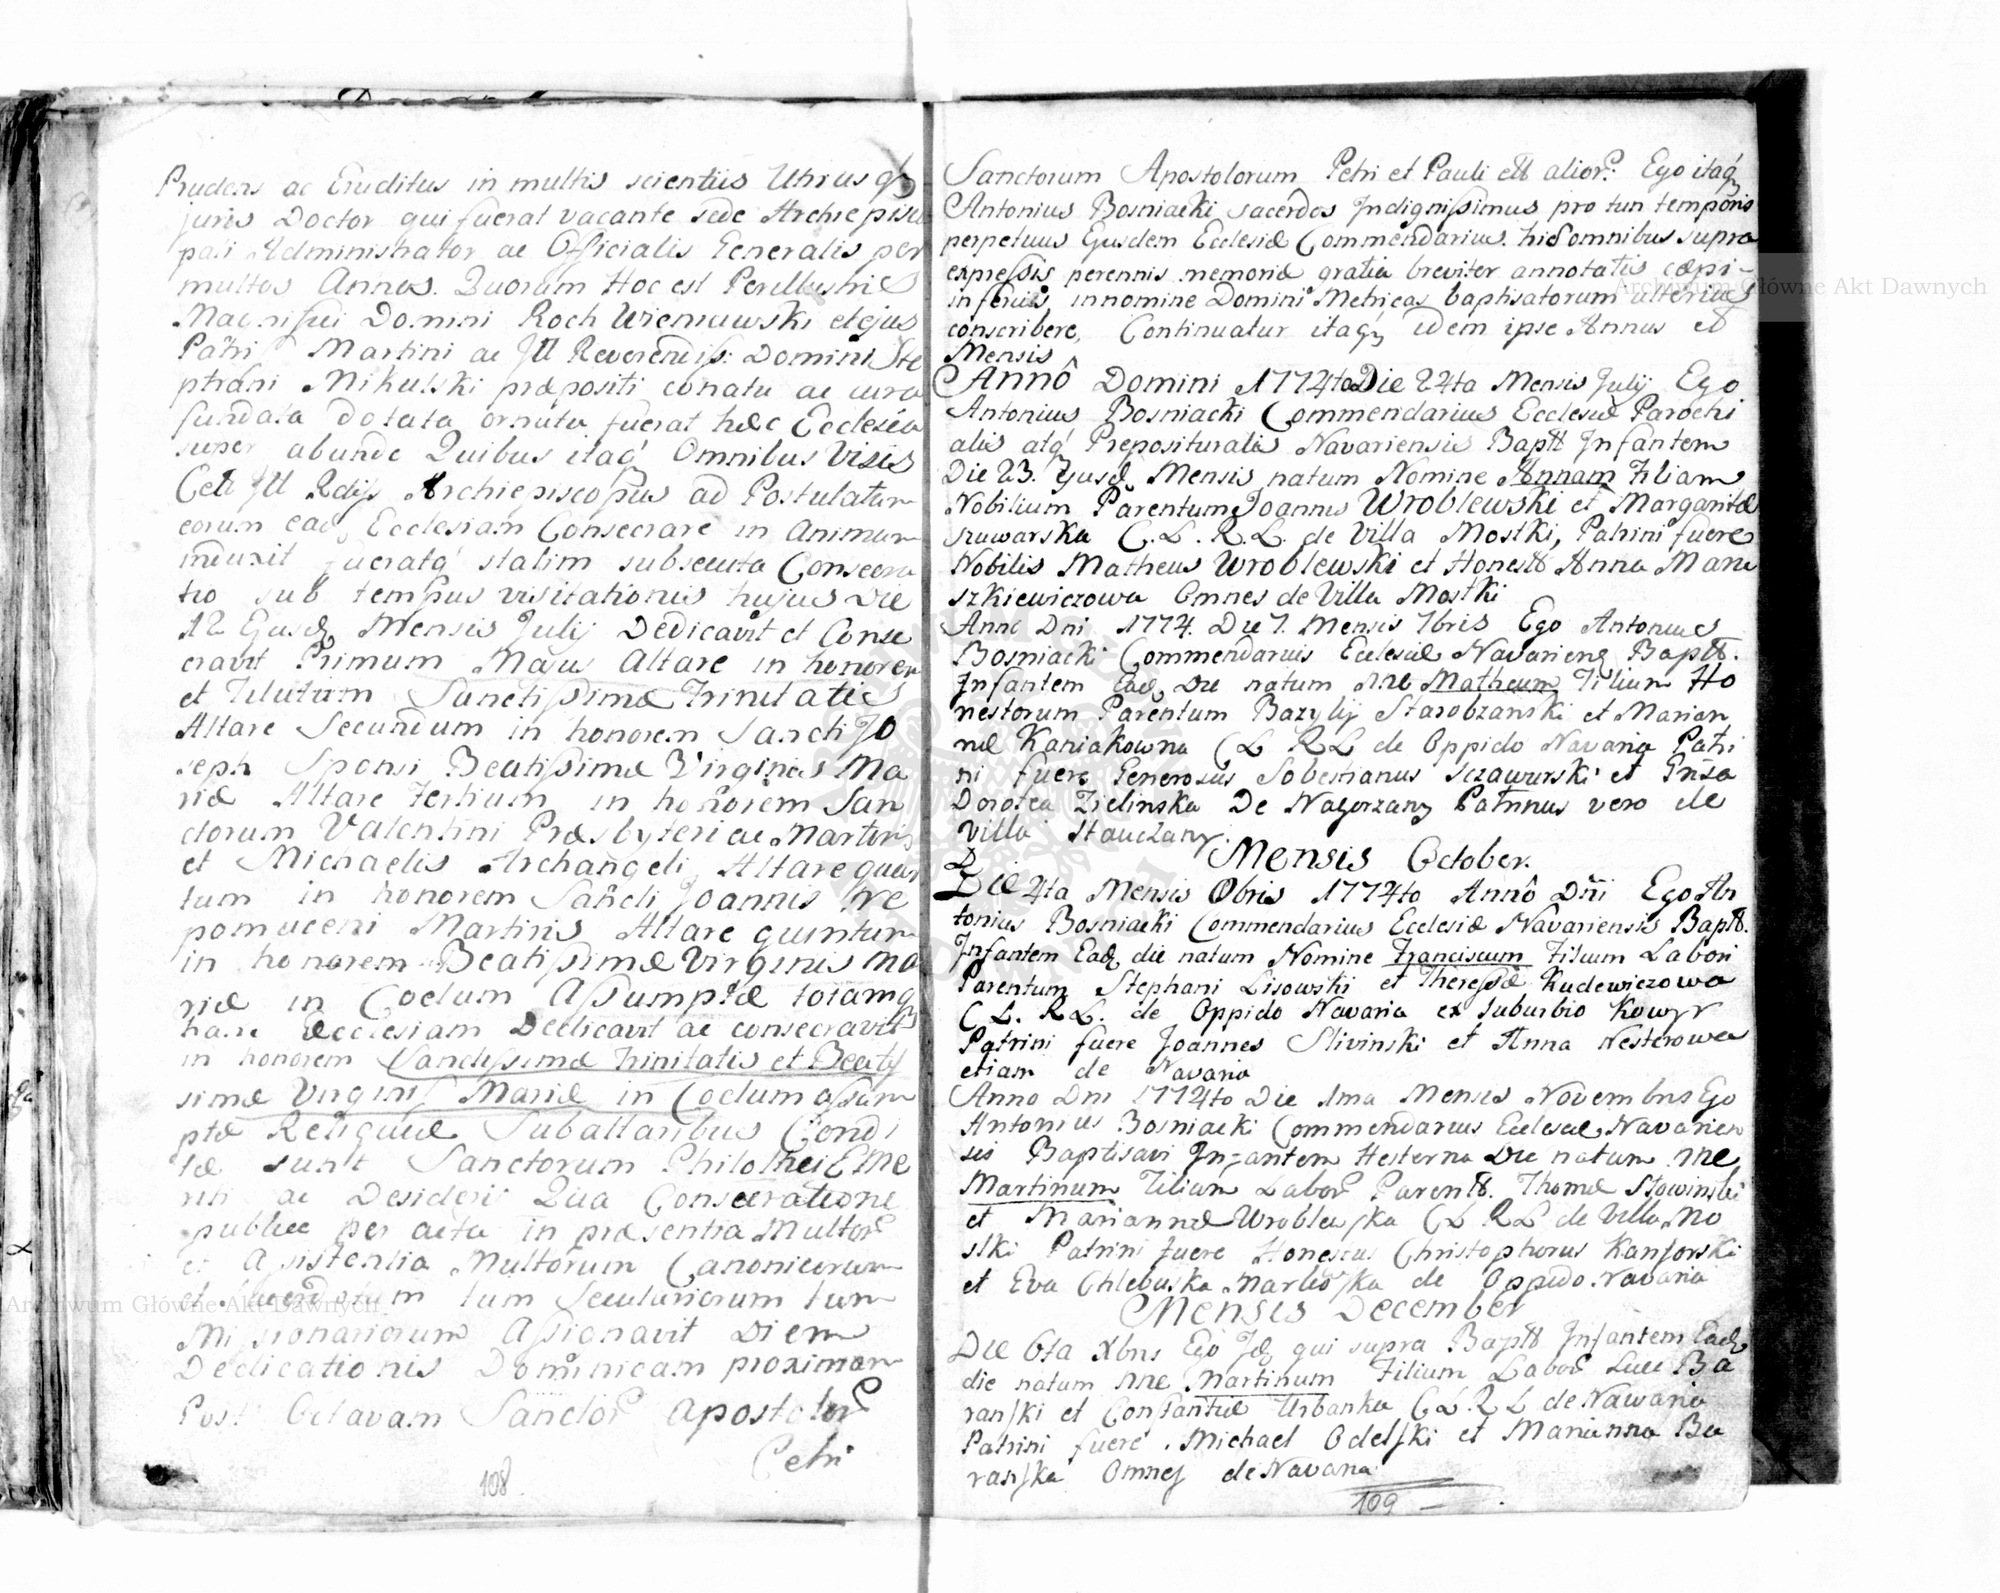 Prudens ac Eruditus in multis scientiis Utriusq
juris Doctor qui fuerat vacante sede Archiepisco
pali Administrator ac Officialis Generalis per
multos Annos. Quorum Hoc est Perillustris
Magnifici Domini Roch Wieniawski et ejus
Patris Martini ac Ill Reverendiss: Domini Ste
phani Mikulski præpositi conatu ac cura
fundata dotata ornata fuerat hæc Ecclesia
super abunde Quibus itaq Omnibus Visis
Cels Ill Rdiss Archiepiscopus ad Postulatum
eorum eaq Ecclesiam Consecrare in Animum
induxit fueratq statim subsecuta Consecra
tio sub tempus visitationis hujus Die
12 Ejusd Mensis Julij Dedicavit et Conse
cravit Primum Majus Altare in honorem
et Titulum Sanctissimæ Trinitatis
Altare Secundum in honorem Sancti Jo
seph Sponsi Beatissimæ Virginis Ma
riæ Altare Tertium in honorem San
ctorum Valentini Præsbyteri ac Martiris
et Michaelis Archangeli, Altare quar
tum in honorem Sancti Joannis Ne
pomuceni Martiris Altare quintum
in honorem Beatissimæ Virginis Ma
riæ in Coelum Assumptæ totamq
hanc Ecclesiam Dedicavit ac consecravit
in honorem Sanctissimæ Trinitatis et Beatis
simæ Virginis Mariæ in Coelum assum
ptæ Reliquiæ Subaltaribus Condi
tæ sunt Sanctorum Philothei Eme
riti ac Desiderii Qua Consecratione
publice per acta in præsentia Multor
et assistentia Multorum Canonicorum
et Sacerdotum tum Secularium tum
Missionariorum Assignavit Diem
Dedicationis Dominicam proximam
Post Octavam Sanctor Apostolor
Petri
108
Sanctorum Apostolorum Petri et Pauli ett alior: Ego itaq
Antonius Bosniacki sacerdos Indignissimus pro tun temporis
perpetuus Ejusdem Ecclesiæ Commendarius. his omnibus supra
expressis perennis memoriæ gratia breviter annotatis cæpi-
inferius, in nomine Domini Metricas baptisatorum ulterius
conscribere, Continuatur itaq idem ipse Annus et
Mensis
Annô Domini 1774to Die 24ta Mensis Julij Ego
Antonius Bosniacki Commendarius Ecclesiæ Parochi
alis atq Preposituralis Navariensis Baptt Infantem
Die 23. Ejusd Mensis natum Nomine Annam Filiam
Nobilium Parentum Joannis Wroblewski et Margaritæ
szuwarska C.L.R.L. de Villa Mostki, Patrini fuere
Nobilis Matheus Wroblewski et Honestt Anna Mare
szkiewiczowa Omnes de Villa Mostki
Anno Dni 1774. Die 7. Mensis 7bris Ego Antonius
Bosniacki Commendarius Ecclesiæ Navarieng Baptt.
Infantem Ead Die natum Nne Matheum Filium Ho
nestorum Parentum Bazylij Starobzanski et Marian
næ Kaniakowna CL RL de Oppido Navaria Patri
ni fuere Generosus Sobestianus Sczawurski et Gnsa
Dorotea Zielinska De Nagorzany Patrinus vero de
Villa Stawczany.
Mensis October.
Die 4ta Mensis 8bris 1774to Annô Dñi Ego An
tonius Bosniacki Commendarius Ecclesiæ Navariensis Baptt.
Infantem Ead die natum Nomine Franciscum Filium Labori
Parentum Stephani Lisowski et Theressæ Kudewiczowa
CL. RL. de Oppido Navaria ex Suburbio Kowyr
Patrini fuere Joannes Slivinski et Anna Nesterowa
etiam de Navaria
Anno Dni 1774to Die 1ma Mensis Novembris Ego
Antonius Bosniacki Commendarius Ecclesiæ Navarien
sis Baptisavi Infantem Hesterna Die natum Nne
Martinum Filium Labor Parentt. Thomæ Stowinski
et Mariannæ Wroblewska CL RL de Villa Mo
stki Patrini fuere Honestus Christophorus Kanforski
et Eva Chlebuska Markowska de Oppido Navaria
Mensis December
Die 6ta Xbris Ego Id qui supra Baptt Infantem Ead
die natum Nne Martinum Filium Labor Luce Ba
ranski et Constantiæ Urbanka CL RL de Nawaria
Patrini fuere Michael Odelski et Marianna Ba
ranska Omnes de Navaria
109
Archiwum Główne Akt Dawnych
Archiwum Główne Akt Dawnych